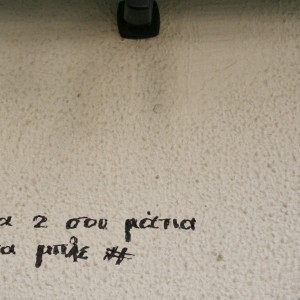 α 2 σου μάτια
α μπλε #